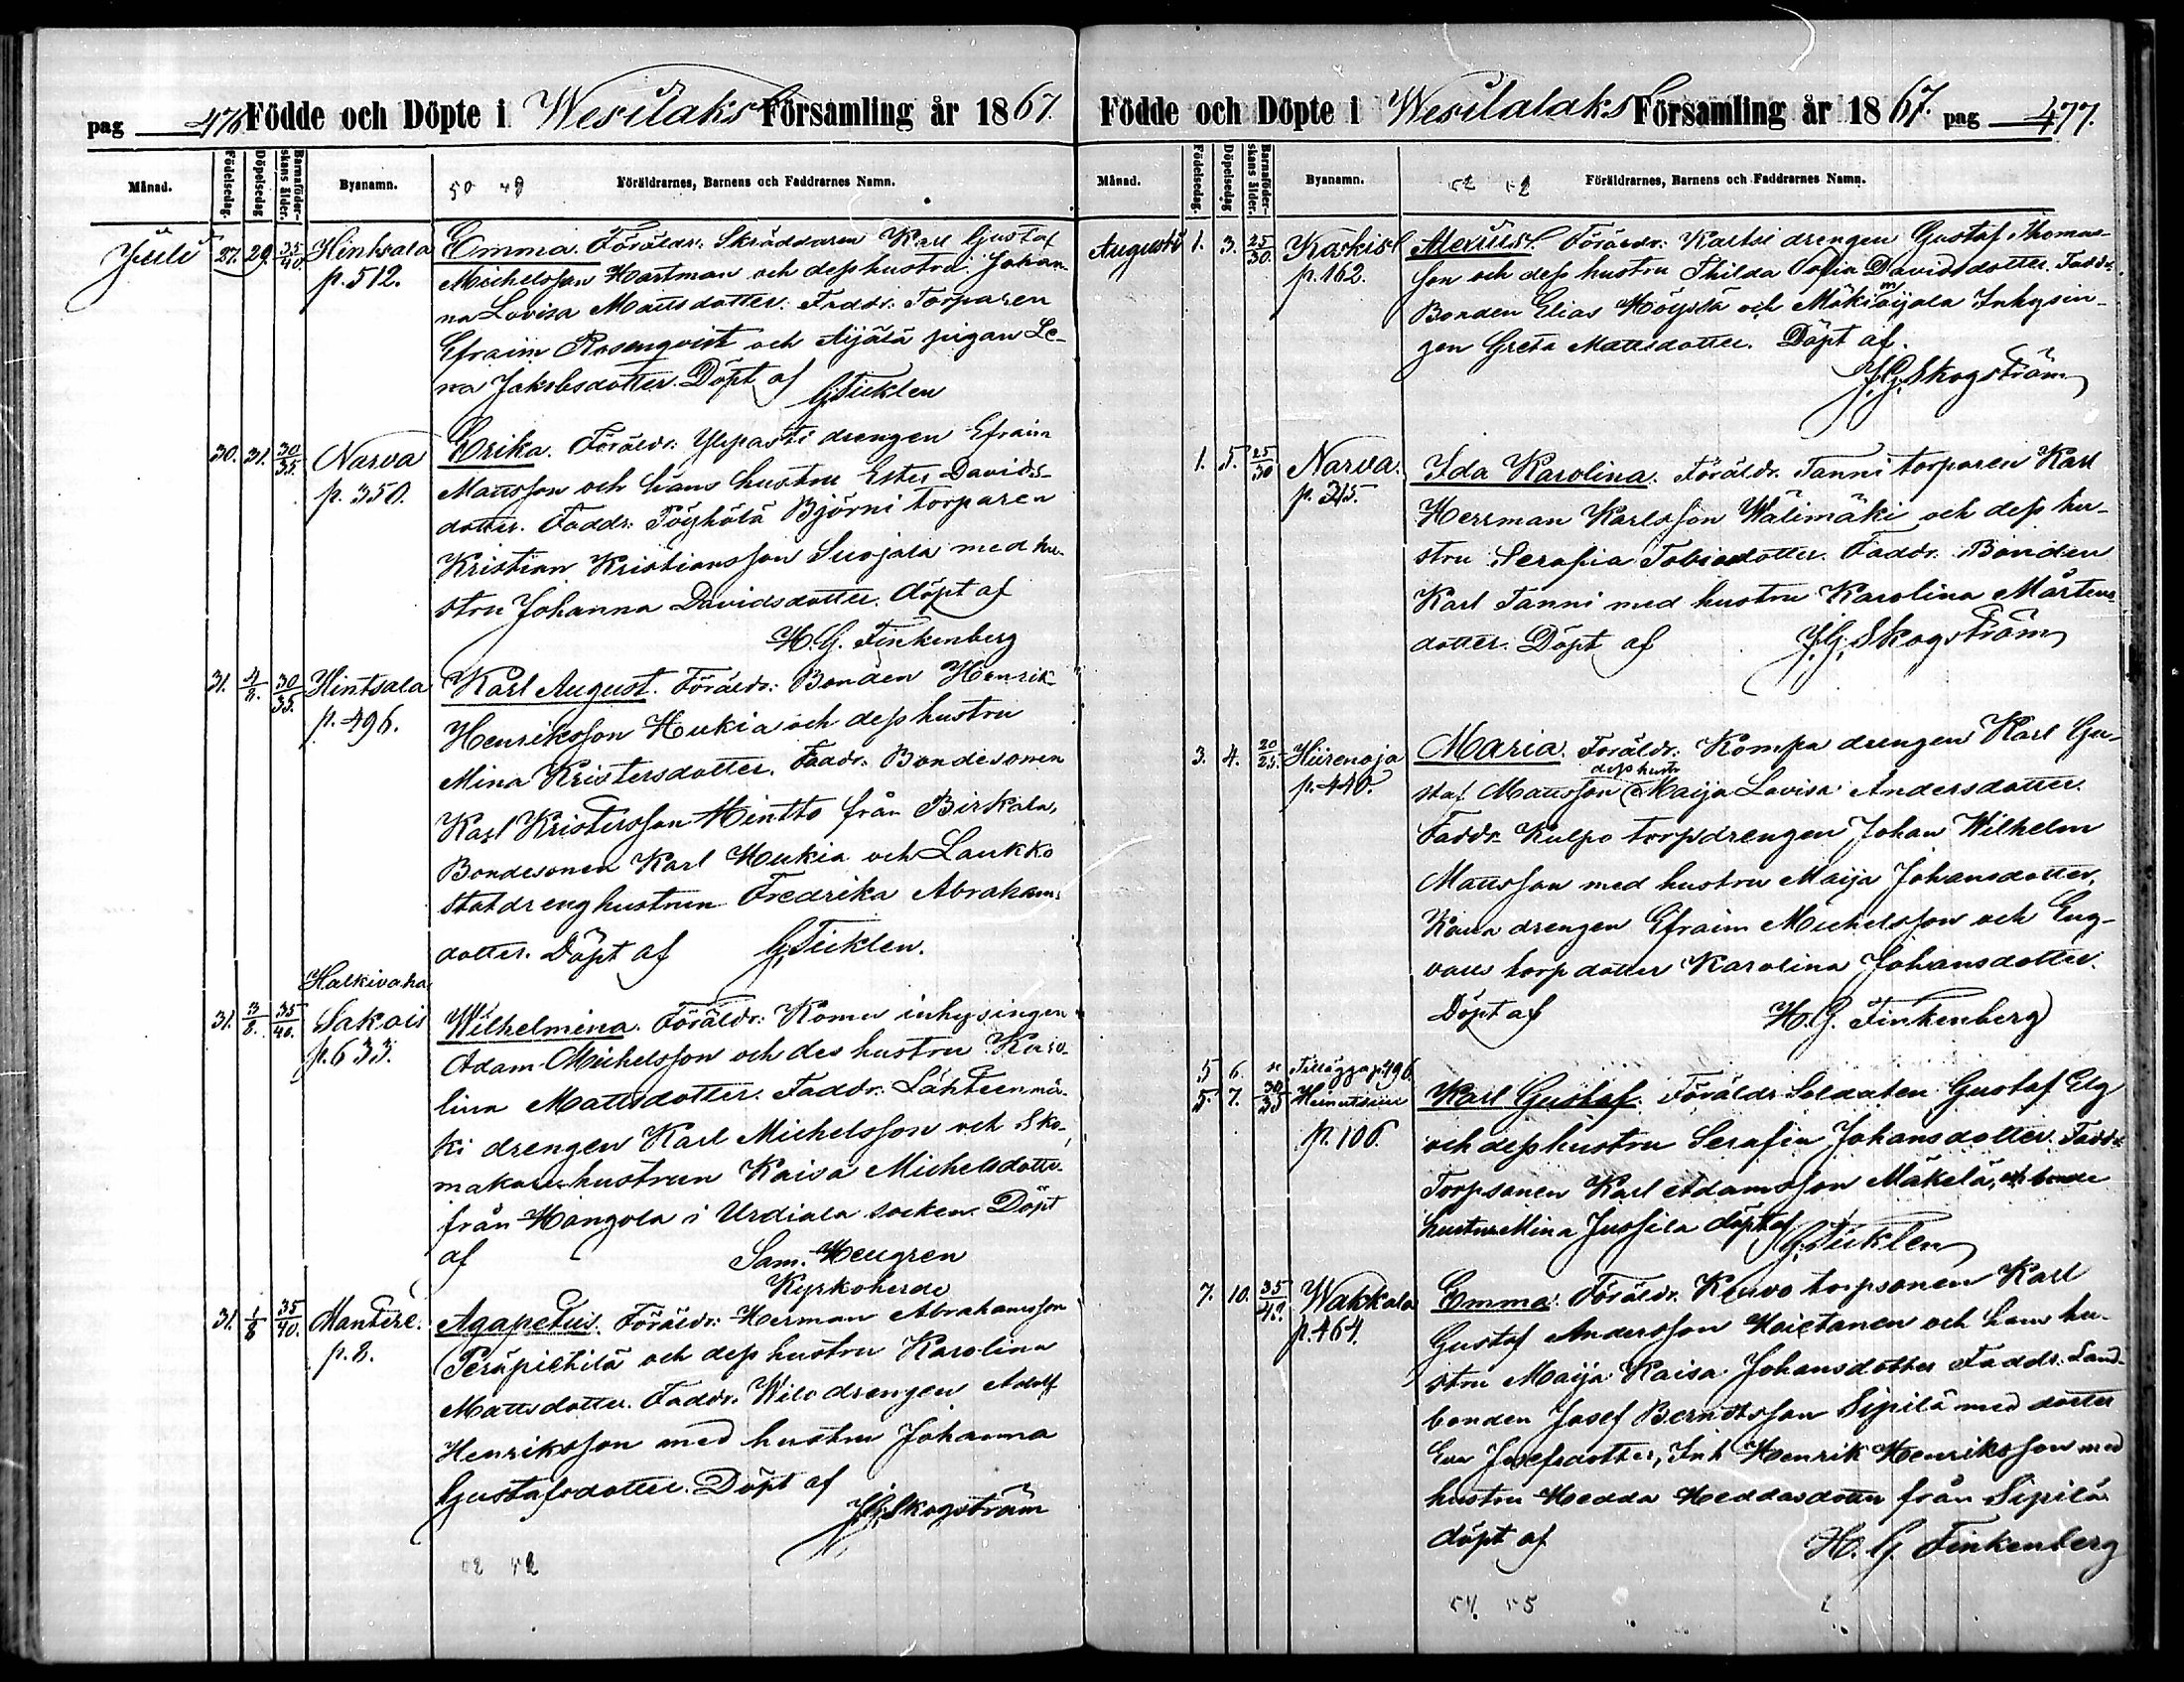 pag 476 Födde och Döpte i Wesilaks Församling år 1867.
Månad. Födelsedag. Döpelsedag Barnaföderskans ålder. Bysnamn. Föräldrarnes, Barnens och Faddrarnes Namn.
50 49
Juli 27. 29. 35/40. Hintsala Emma. Föräldr: Skräddaren Karl Gustaf
p. 512. Michelsson Hartman och dess hustru Johan-
na Lovisa Mattsdotter. Faddr. Torparen
Efraim Rosenqvist och Aijälä pigan Le-
na Jakobsdotter. Döpt af
G. Ticklen
30. 31. 30/35. Narva Erika. Föräldr: Ylipasti drengen Efraim
p. 350. Mattsson och hans hustru Ester Davids-
dotter. Faddr: Pöyhölä Björni torparen
Kristian Kristiansson Suojala med hu-
stru Johanna Davidsdotter. döpt af
H. G. Finkenberg
31. 4/8. 30/35. Hintsala Karl August. Föräldr: Bonden Henrik
p. 496. Henriksson Hukia och dess hustru
Mina Kristersdotter. Faddr. Bondesonen
Karl Kristersson Hintto från Birkala,
Bondesonen Karl Hukia och Laukko
statdrenghustrun Fredrika Abrahams
dotter. Döpt af G. Ticklen.
Halkivaha
31. 3/8. 35/40. Sakois Wilhelmina. Föräldr: Komu inhysingen
p. 633. Adam Michelsson och des hustru Karo-
lina Mattsdotter. Faddr: Lähteenmä-
ki drengen Karl Michelsson och Sko-
makarehustrun Kaisa Michelsdotter
från Hongola i Urdiala socken. Döpt
af Sam. Heugren
Kyrkoherde
31. 1/8 35/40. Mantere. Agapetus. Föräldr: Herman Abrahamsson
p. 8. Peräpietilä och dess hustru Karolina
Mattsdotter. Faddr. Wilo drengen Adolf
Henriksson med hustru Johanna
Gustafsdotter. Döpt af
J. G. Skogström
52 52
Födde och Döpte i Wesilalaks Församling år 1867. pag 477.
Månad. Födelsedag. Döpelsedag Barnaföderskans ålder. Bysnamn. Föräldrarnes, Barnens och Faddrarnes Namn.
52 52
Augusti 1. 3. 25/30. Kaskis Alexius. Föräldr: Kaltsi drengen Gustaf Thomas-
p. 162. son och dess hustru Thilda Sofia Davidsdotter. Faddr.
Bonden Elias Höyssä och Inhysin-
gen Greta Mattsdotter. Döpt af.
J. G. Skogström
1. 5. 25/30 Narva. Ida Karolina. Föräldr. Tanni torparen Karl
p. 315. Herrman Karlsson Wälimäki och dess hu-
stru Serafia Tobiasdotter. Faddr. Bonden
Karl Tanni med hustru Karolina Mårtens
dotter. Döpt af J. G. Skogström
3. 4. 20/25. Hiirenoja Maria. Föräldr: Kompa drengen Karl Gu-
dess hustr
p. 440. staf Mattsson Maija Lovisa Andersdotter.
Faddr. Kulpo torpdrengen Johan Wilhelm
Mattsson med hustru Maija Johansdotter,
drengen Efraim Michelsson och Eng-
torpdotter Karolina Johansdotter.
Döpt af H. G. Finkenberg
5 6. Tillägg p. 496
5. 7. 30/35 Karl Gustaf. Föräldr Soldaten Gustaf Elg
p. 106. och dess hustru Serafia Johansdotter. Faddr
Torpsonen Karl Adamsson Mäkelä, och bonde
hustru Mina Jussila döpt af G. Ticklen
7. 10. 35/40. Wakkala Emma. Föräldr. Kurvo torpsonen Karl
p. 464. Gustaf Andersson Hoietanen och hans hu-
stru Maija Kaisa Johansdotter Faddr. Land-
bonden Josef Berndtsson Sipilä med dotter
Eva Josefsdotter, Inh Henrik Henriksson med
hustru Hedda Heddasdotter från Sipilä
döpt af H. G. Finkenberg
54. 55